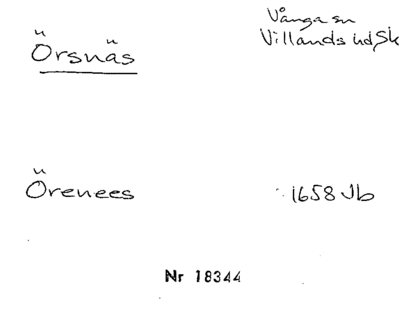 Vånga sn
Villands hd, Sk
Örsnäs
Örenees
1658 Jb
Nr 18344